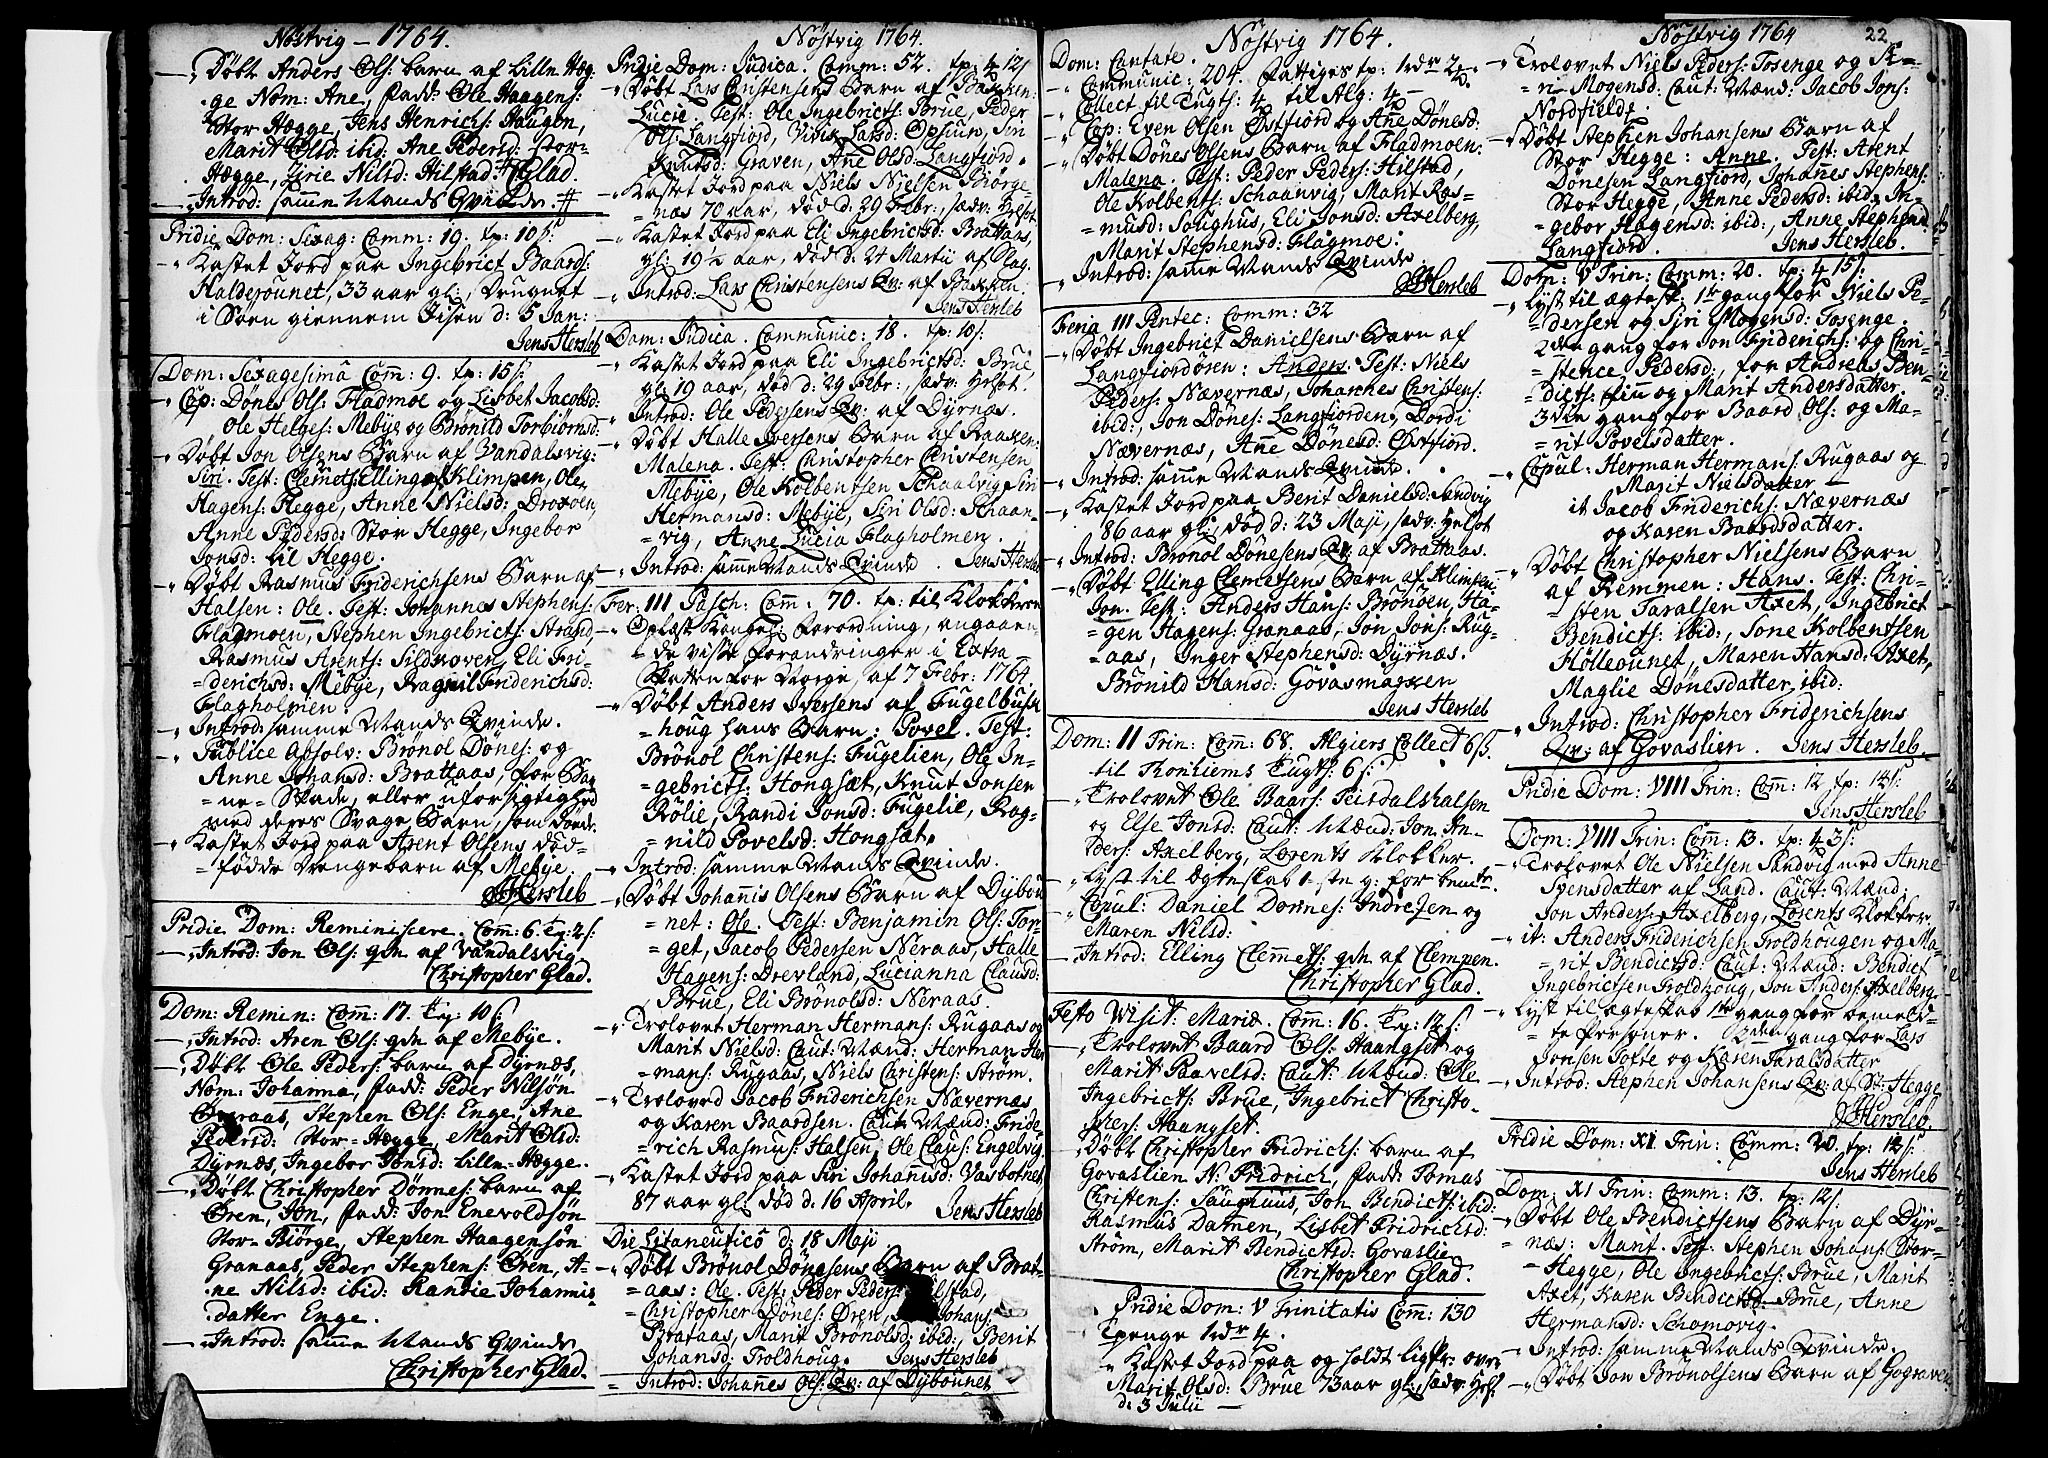 Nøstvig - 1764.
-, Døbt Anders Ols: barn af Lille Hæg-
ge Nom: Ane, fadd: Ole Haagens:
Stor Hægge, Jens Henrichs: Haugen,
Marit Olsd: ibid: Ane Pedersd: Stor-
Hægge, Sirie Nilsd: Hilstad. Glad.
-, Introd: samme Mands Qvinde.
Pridie Dom: Sexag: Comm: 19. tp: 10 s:
-, Kastet Jord paa Ingebrict Baards:
Halderounet, 33 aar gl:, Druqnet
i Søen giennem Jisen d: 5 Jan:
Jens Hersleb
Dom: Sexagesima Com: 9. tp: 15 s:
-, Cop: Dønes Ols: Fladmoe og Lisbet Jacobsd:
Ole Helges: Mebye og Brønild Torbiørnsd:
-, Døbt Jon Olsens Barn af Vandalsvig:
Siri. Test: Clemets: Elling af Klimpen, Ole
Hagens: Hegge, Anne Nielsd: Droxoen,
Anne Pedersd: Stor Hegge, Ingebor
Jonsd: lil Hegge.
-, Døbt Rasmus Friderichsens Barn af
Halsen: Ole. Test: Johannes Stephens:
Flagmoen, Stephen Ingebricts: Strand,
Rasmus Arents: Sildhoven, Eli Fri-
=derichsd: Mebye, Ragnil Friderichsd:
Flagholmen.
-, Introd: samme Mands Qvinde.
-, Publice Absolv: Brønol Dönes: og
Anne Johansd: Brattaas, for Bar-
=ne= Skade, eller uforsigtighed
med deres Svage Barn, som døde.
-, Kastet Jord paa Arent Olsens død-
=fødde Drengebarn af Mebye.
JHersleb
Pridie Dom: Reminiscere. Com: 6. Tp: 2 s:
-, Introd: Jon Ols: qvn af Vandalsvig.
Christopher Glad.
Dom: Remin: Com: 17. Tp: 10 s:
-, Introd: Aren Ols: qvn af Mebÿe.
-, Døbt Ole Peders: barn af Dyrnæs,
Nom: Johanna, fadd: Peder Nilsøn
Øveraas, Stephen Ols: Enge, Ane
Pedersd: Stor-Hægge, Marit Olsd:
Dyrnæs, Ingebor Jonsd: Lille-Hægge.
-, Døbt Christopher Dønnes: barn af
Øren, Jon, fadd: Jon Enevoldsøn
Stor-Biörge, Stephen Haagensøn
Granaas, Peder Stephens: Øren, A-
ne Nilsd: ibid: Randie Johannis-
datter Enge.
-, Introd: samme Mands Qvinde
Christopher Glad.
Nøstvig 1764.
Pridie Dom: Judica. Comm: 52. tp: 4 12 s
-, Døbt Lars Christensens Barn af Baxken:
Lucie. Test: Ole Ingebricts: Brue, Peder
Ols: Langfiord, Vibix Larsd: Opsum, Siri
Knutsd: Graven, Anne Olsd: Langfiord.
-, Kastet Jord paa Niels Nielsen Biørge-
=næs 70 aar, død d: 29 Febr:, sædv: Helsot.
-, Kastet Jord paa Eli Ingebrictsd: Brattaas,
gl: 19½ aar, død d: 24 Martii af Plag.
-, Introd: Lars Christensens Qv: af Baxken.
Jens Hersleb
Dom: Judica. Communic: 18. tp: 10 s:
-, Kastet Jord paa Eli Ingebrictsd: Brue,
gl: 19 aar, død d: 29 Febr:, sædv: Helsot.
-, Introd: Ole Pedersens Qv: af Dÿrnæs.
-, Døbt Halle Iversens Barn af Raaken:
Malena. Test: Christopher Christensen
Mebÿe, Ole Kolbentsen Schaalvig, Siri
Hermansd: Mebÿe, Siri Olsd: Skaan-
=vig, Anne Lucia Flagholmen.
-, Introd: samme Mands Qvinde. Jens Hersleb
Fer: III Pasch: Com: 70. tp: til Klokkeren
-, Oplæst Kongel: Forordning, angaaen-
=de visse forandringer i Extra-
Skatten for Norge, af 7 Febr: 1764.
-, Døbt Anders Iversens af Fugelbusk
=houg hans Barn: Povel. Test:
Brönol Christens: Fugelien, Ole In-
=gebricts: Hongsæt, Knut Jonsen
Rölie, Randi Jonsd: Fugelie, Rag-
=nild Povelsd: Hongsæt.
-, Introd: samme Mands Qvinde.
-, Døbt Johannis Olsens Barn af Dÿbou
=net: Ole. Test: Benjamin Ols: Tor-
=get, Jacob Pedersen Neraas, Halle
Hagens: Drevland, Lucianna Clausd:
Brue, Eli Brönolsd: Neraas.
-, Trolovet Herman Hermans: Rugaas og
Marit Nielsd: Caut: Mænd: Herman Her
=mans: Rugaas, Niels Christens: Ström.
-, Troloved Jacob Friderichsen Nævernæs
og Karen Baardsen. Caut: Mænd: Fride-
=rich Rasmus: Halsen, Ole Claus: Engelvig.
-, Kastet Jord paa Siri Johannisd: Vasbotnet
87 aar gl: død d: 16 April. Jens Hersleb
Die Litaneutico d: 18 Maji
-, Døbt Brönol Dönesens Barn af Brat-
=aas: Ole. Test: Peder Peders: Hilstad,
Christopher Dönes: Øren, Johans:
Brataas, Marit Brönolsd: ibid:, Berit
Johansd: Troldhoug. Jens Hersleb
= Introd: Johannes Ols: Qv: af Dÿbounet
Nöstvig 1764.
Dom: Cantate.
-, Communic: 204. Fattiges tp: 1 rdr 2
-, Collect til Tugts: 4 til Alg: 4 -
-, Cop: Even Olsen Østfiord og Anne Dönesd:
-, Döbt Dönes Olsens Barn af Fladmoen:
Malena. Test: Peder Peders: Hilstad,
Ole Kolbents: Schaanvig, Marit Ras-
=musd: Soughus, Eli Jonsd: Axelberg,
Marit Stephensd: Flagmoe:
-, Introd: samme Mands Qvinde.
JHersleb
Feria III Pentec: Comm: 32
-, Döbt Ingebrict Danielsens Barn af
Langfiordören: Anders. Test: Niels
Peders: Nævernæs, Johannes Christens:
ibid:, Jon Dönes: Langfiorden, Dordi
Nævernæs, Anne Dönesd: Østfiord.
-, Introd: samme Mands Qvinde.
-, Kastet Jord paa Berit Danielsd: Sandvig
86 aar gl:, død d: 23 Maji, sædv: Helsot
-, Introd: Brönol Dönesens Qv: af Brattaas.
-, Döbt Elling Clemetsens Barn af Klimpen:
Jon. Test: Anders Hans: Brönöen, Ha-
=gen Hagens: Granaas, Jon Jons: Rug-
=aas, Inger Stephensd: Dÿrnæs.
Brönild Hansd: Govasmarken
Jens Hersleb
Dom: II Trin: Com: 68. Algiers Collect 6 s.
til Tronhiems Tugts: 6 s:
-, Trolovet Ole Baars: Teisdalshalsen
og Else Jonsd: Caut: Mænd: Jon An-
ders: Axelberg, Lorents Klokker.
-, Lyst til Ægteskab 1-ste g: for bemte.
-, Copul: Daniel Dönnes: Indresen og
Maren Nilsd:
-, Introd: Elling Clemets: qvn af Clempen.
Christopher Glad.
Festo Visit: Mariæ. Com: 16. Tp: 12 s:
-, Trolovet Baard Ols: Haangset og
Marit Paavelsd: Caut: Mænd: Ole
Ingebricts: Brue, Ingebrict Christo-
phers: Haangset.
-, Döbt Christopher Fridrichs: barn af
Govaslien N: Fridrich, fadd: Tomas
Christens: Saughuus, Jon Bendicts: ibid:
Rasmus Datnen, Lisbet Fridrichsd:
Ström, Marit Bendictsd: Govaslie
Christopher Glad.
Pridie Dom: V Trinitatis Com: 130
-, Tpenge 1 rdr 4.
-, Kastet Jord paa og holdt ligpr: over
Marit Olsd: Brue 73 aar gl:, sædv: Hels.
d: 3 Julii -
Nöstvig 1764 22.
-, Trolovet Niels Peders: Tosenge og Si-
=ri Mogensd: Caut: Mænd: Jacob Jons:
Nordfield:
-, Döbt Stephen Johansens Barn af
Stor Hegge: Anne. Test: Arent
Dönesen Langfiord, Johannes Stephens:
Stor Hegge, Anne Pedersd: ibid: In-
=gebor Hagensd: ibid:, Anne Stephensd
Langfiord. Jens Hersleb.
Dom: V Trin: Comm: 20. tp: 4 15 s:
-, Lyst til Ægtesk: 1te gang for Niels Pe-
=dersen og Siri Mogensd: Tosenge.
2den gang for Jon Friderichs: og Chri-
=stence Pedersd:, for Andreas Ben-
dicts: Finn og Marit Andersdatter.
3die gang for Baard Ols: og Ma-
=rit Povelsdatter.
-, Copul: Herman Hermans: Rugaas og
Marit Nielsdatter -
it Jacob Friderichs: Nævernæs
og Karen Baardsdatter.
-, Döbt Christopher Nielsens Barn
af Remmen: Hans. Test: Chri-
=sten Taralsen Axet, Ingebrict
Bendicts: ibid:, Sone Kolbentsen
Hölleounet, Maren Hansd: Axet,
Maglie Dönesdatter ibid:
-, Introd: Christopher Friderichsens
Qv: af Govaslien. Jens Hersleb.
Pridie Dom: VIII Trin: Comm: 12 tp: 14 s:
Jens Hersleb
Dom: VIII Trin: Com: 13. tp: 4 3 s:
-, Trolovet Ole Nielsen Sandvig med Anne
Svensdatter af Land. Caut: Mænd:
Jon Anders: Axelberg, Lorents Klokker.
-, it: Anders Friderichsen Troldhougen og Ma-
=rit Bendictsd: Caut: Mænd: Bendict
Ingebrictsen Troldhoug, Jon Anders: Axelberg.
-, Lyst til ægteskab 1te gang for bemeld-
=te Personer. 2den gang for Lars
Jonsen Tofte og Karen Taralsdatter
-, Introd: Stephen Johansens Qv: af St: Hegge.
JHersleb.
Pridie Dom: XI Trin: Comm: 20. tp: 14 s:
Jens Hersleb
Dom: XI Trin: Comm: 13. tp: 12 s.
-, Döbt Ole Bendictsens Barn af Dÿr-
=næs: Marit. Test: Stephen Johans: Stor-
=Hegge, Ole Ingebricts: Brue, Marit
Axet, Karen Bendictsd: Brue, Anne
Hermansd: Schomovig.
-, Introd: samme Mands Qvinde.
-, Döbt Jon Brönolsens Barn af Gograven